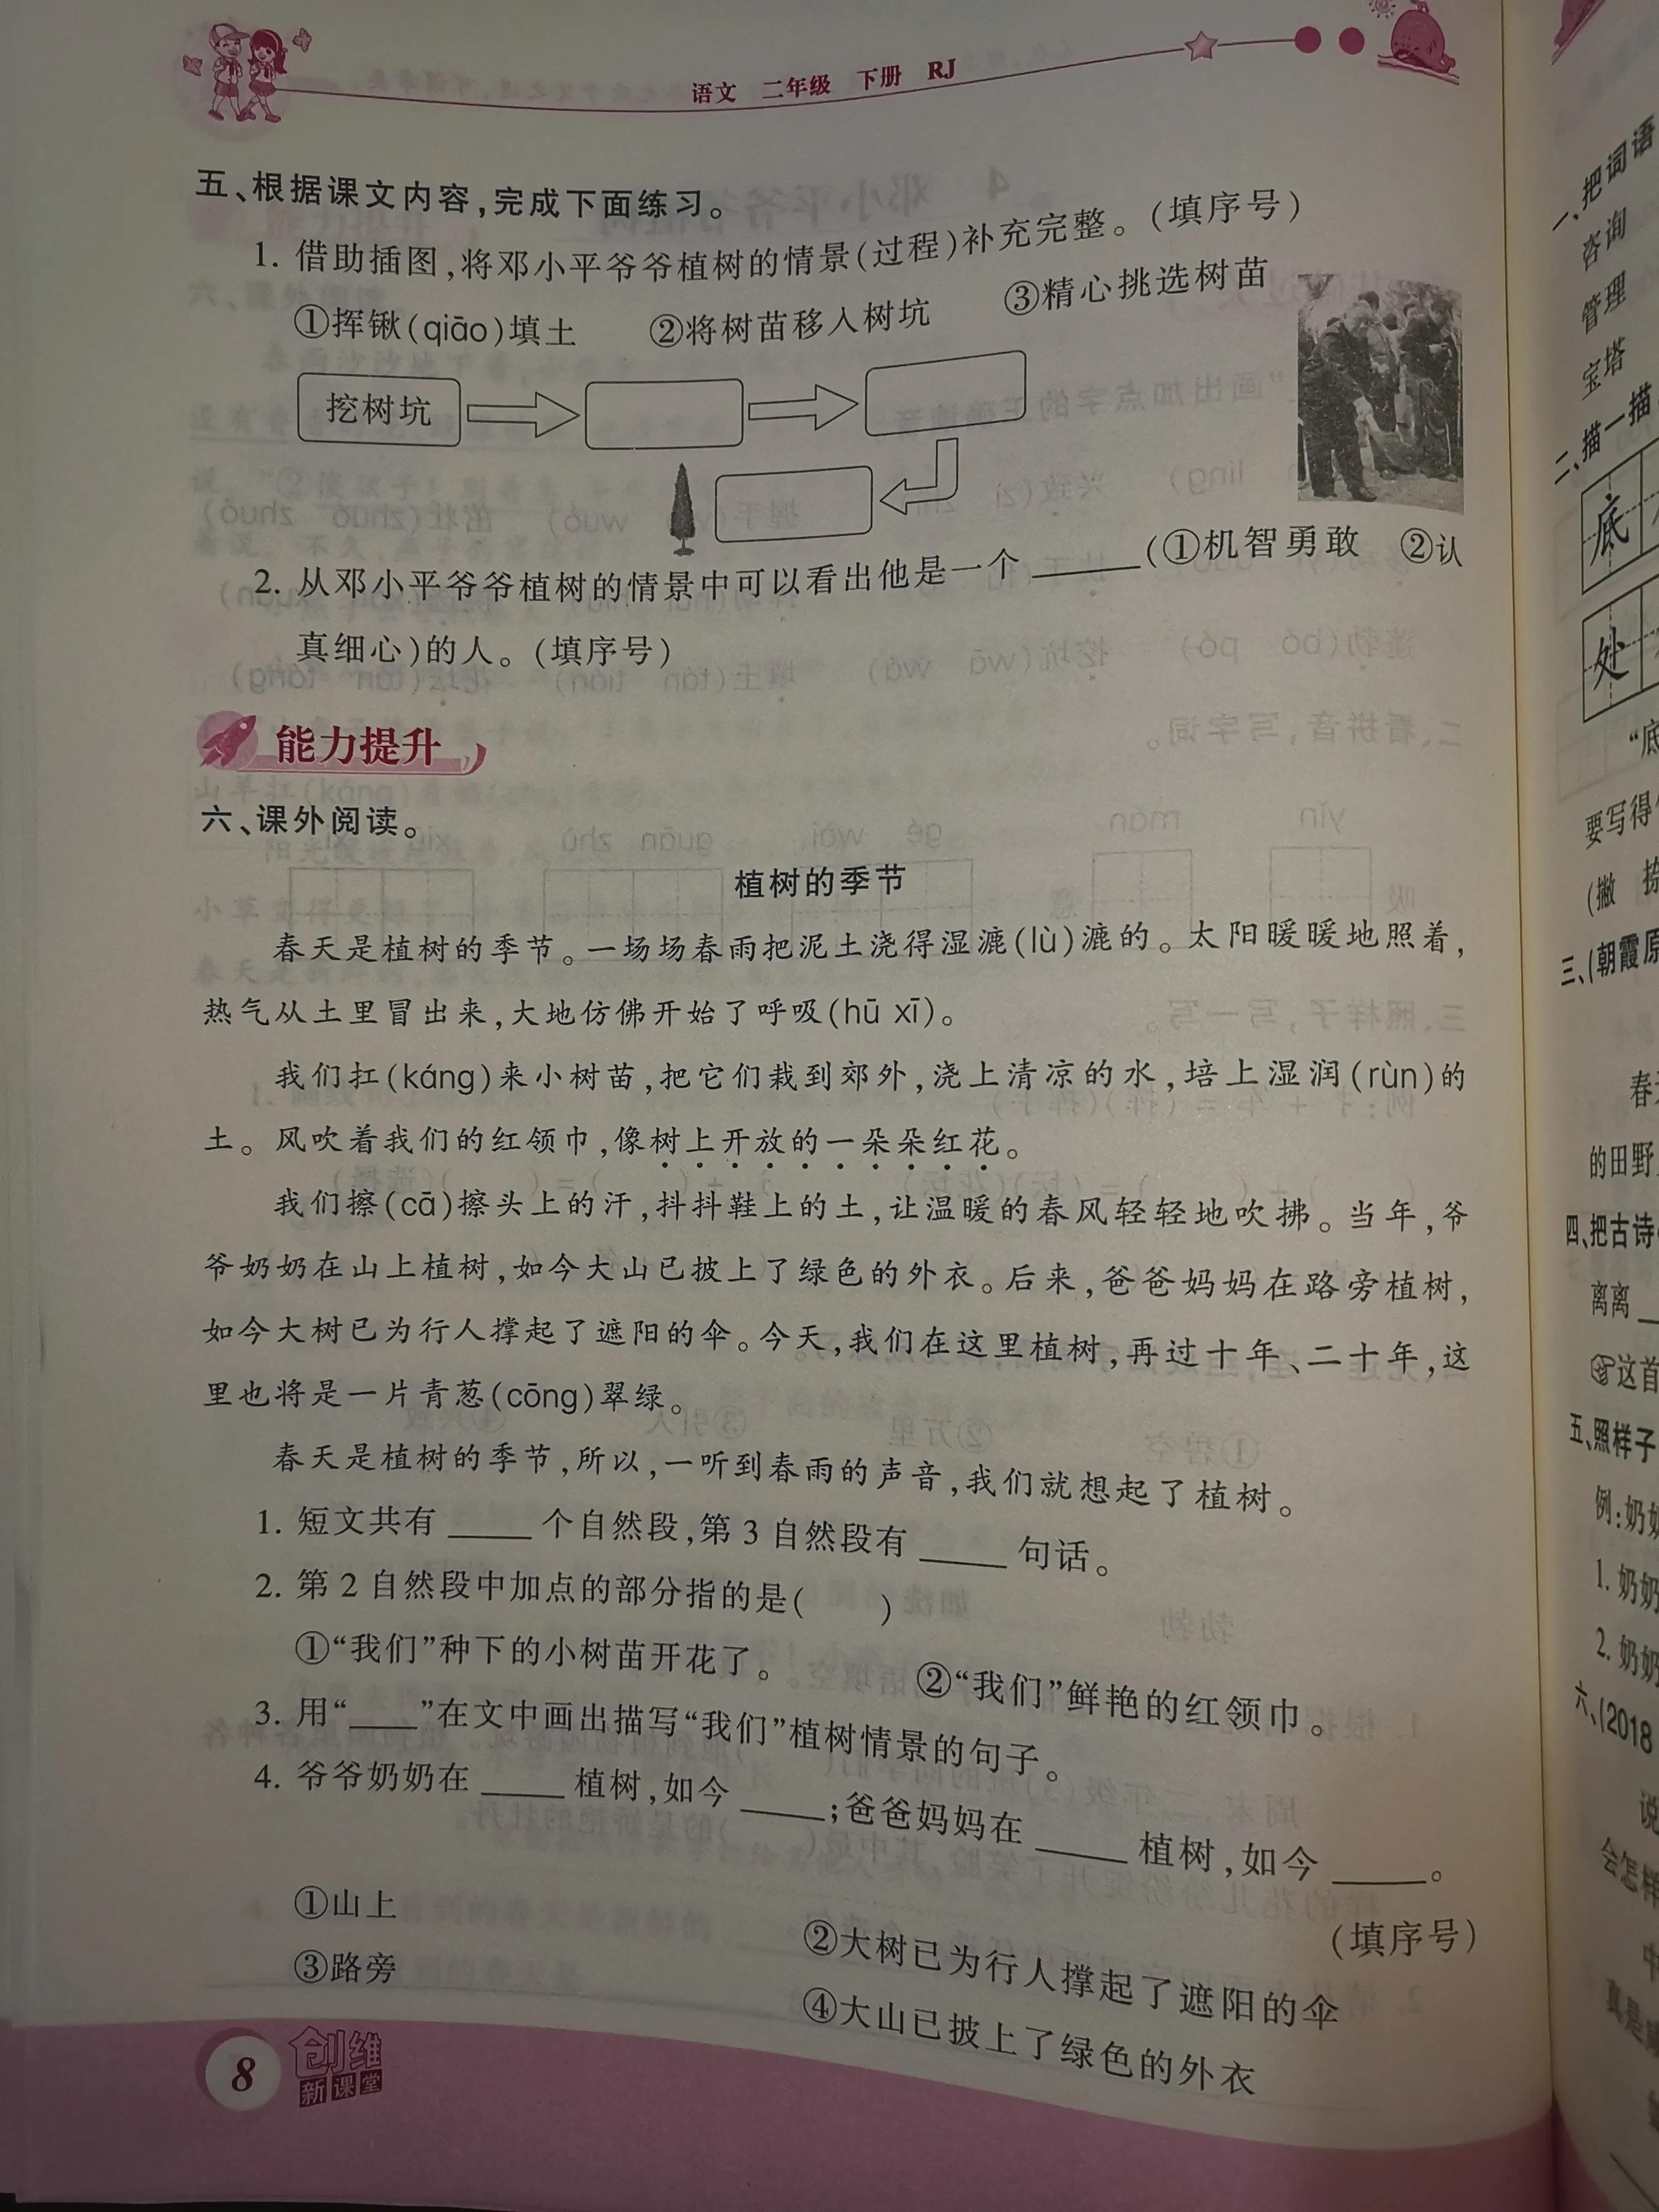 语文 二年级 下册 RJ
五、根据课文内容,完成下面练习。
1. 借助插图,将邓小平爷爷植树的情景(过程)补充完整。(填序号)
①挥锹(qiāo)填土 ②将树苗移入树坑 ③精心挑选树苗
挖树坑
2. 从邓小平爷爷植树的情景中可以看出他是一个 _____ (①机智勇敢 ②认
真细心)的人。(填序号)
能力提升
六、课外阅读。
植树的季节
春天是植树的季节。一场场春雨把泥土浇得湿漉(lù)漉的。太阳暖暖地照着,
热气从土里冒出来,大地仿佛开始了呼吸(hū xī)。
我们扛(káng)来小树苗,把它们栽到郊外,浇上清凉的水,培上湿润(rùn)的
土。风吹着我们的红领巾,像树上开放的一朵朵红花。
我们擦(cā)擦头上的汗,抖抖鞋上的土,让温暖的春风轻轻地吹拂。当年,爷
爷奶奶在山上植树,如今大山已披上了绿色的外衣。后来,爸爸妈妈在路旁植树,
如今大树已为行人撑起了遮阳的伞。今天,我们在这里植树,再过十年、二十年,这
里也将是一片青葱(cōng)翠绿。
春天是植树的季节,所以,一听到春雨的声音,我们就想起了植树。
1. 短文共有 ____ 个自然段,第 3 自然段有 ____ 句话。
2. 第 2 自然段中加点的部分指的是( )
①“我们”种下的小树苗开花了。 ②“我们”鲜艳的红领巾。
3. 用“____”在文中画出描写“我们”植树情景的句子。
4. 爷爷奶奶在 ____ 植树,如今 ____ ;爸爸妈妈在 ____ 植树,如今 ____ 。
(填序号)
①山上 ②大树已为行人撑起了遮阳的伞
③路旁 ④大山已披上了绿色的外衣
8 创维
新课堂
一、把词语
咨询
管理
宝塔
二、描一描
底
处
“底
要写得
(撇 捺
三、(朝霞原
春
的田野
四、把古诗
离离
这首
五、照样子
例:奶奶
1. 奶奶
2. 奶奶
六、(2018
说
会怎样